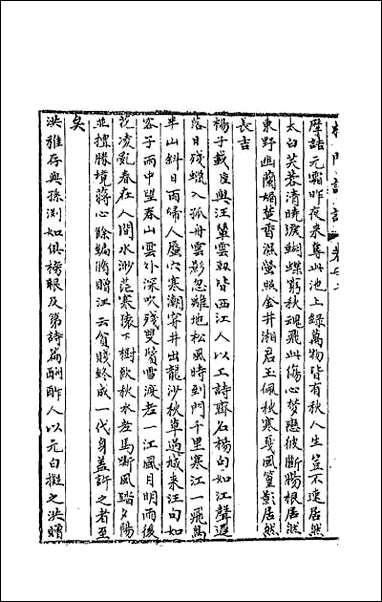 摩詰元霜昨夜来尊此池上綠萬物皆有秋人生豈不達居然
太白芙蓉清曉淚蝴蝶窮秋魂飛此傷心夢應彼斷腸根居然
東野幽蘭媚楚香濕螢照金井湘君玉佩秋寒戛風篁影居然
長吉
楊子載與汪輦雲皆西江人以工詩齊名楊句如江聲過
落日殘蠟入孤舟雲影忽離地松風時到門千里寒江一飛鳥
半山斜日兩歸人廬穴寒潮穿井出龍沙秋草過城来汪句如
客子雨中望春山雲外深吹殘雙鬢雪渡老一江風月明而後
花凌亂春在人間水渺茫寒猿下樹飲秋水老馬斷風踏夕陽
並擅勝境蔣心餘編脩贈江云貧賤終成一代身蓋許之者至
矣
洪稚存與孫淵如俱榜眼及第詩篇酬酢人以元白擬之洪贈